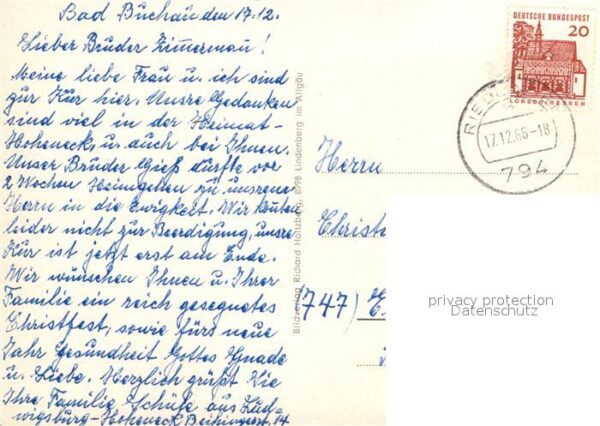 Bad Buchau, den 17.12.
Lieber Bruder Zimmerman!
Meine liebe Frau u. ich sind
zur Kür hier. Unsre Gedanken
sind viel in der Heimat-
Hoheneck, u. auch bei Ihnen.
Unser Brüder Gieß dürfte vor
2 Wochen Heimgehen zu unserem
Herrn in die Ewigkeit. Wir konten
leider nicht zur Beerdigung, unsre
Kür ist jetzt erst am Ende.
Wir wünschen Ihnen u. Ihrer
Familie ein reich gesegnetes
Christfest, sowie fürs neue
Jahr Gesundheit Gottes Gnade
u. Liebe. Herzlich grüßt Sie
Ihre Familie Schüfe aus Lud-
wigsburg-Hoheneck Beihingerstr. 14
Bildverlag Richard Holzberg, 8998 Lindenberg im Allgäu
DEUTSCHE BUNDESPOST
20
LORSCH/HESSEN
RIEDL
17.12.66-18
794
Herrn
Christ
(747) E
privacy protection
Datenschutz